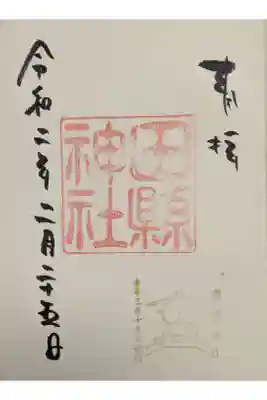 奉拝
田縣
神社
令和二年二月二十五日